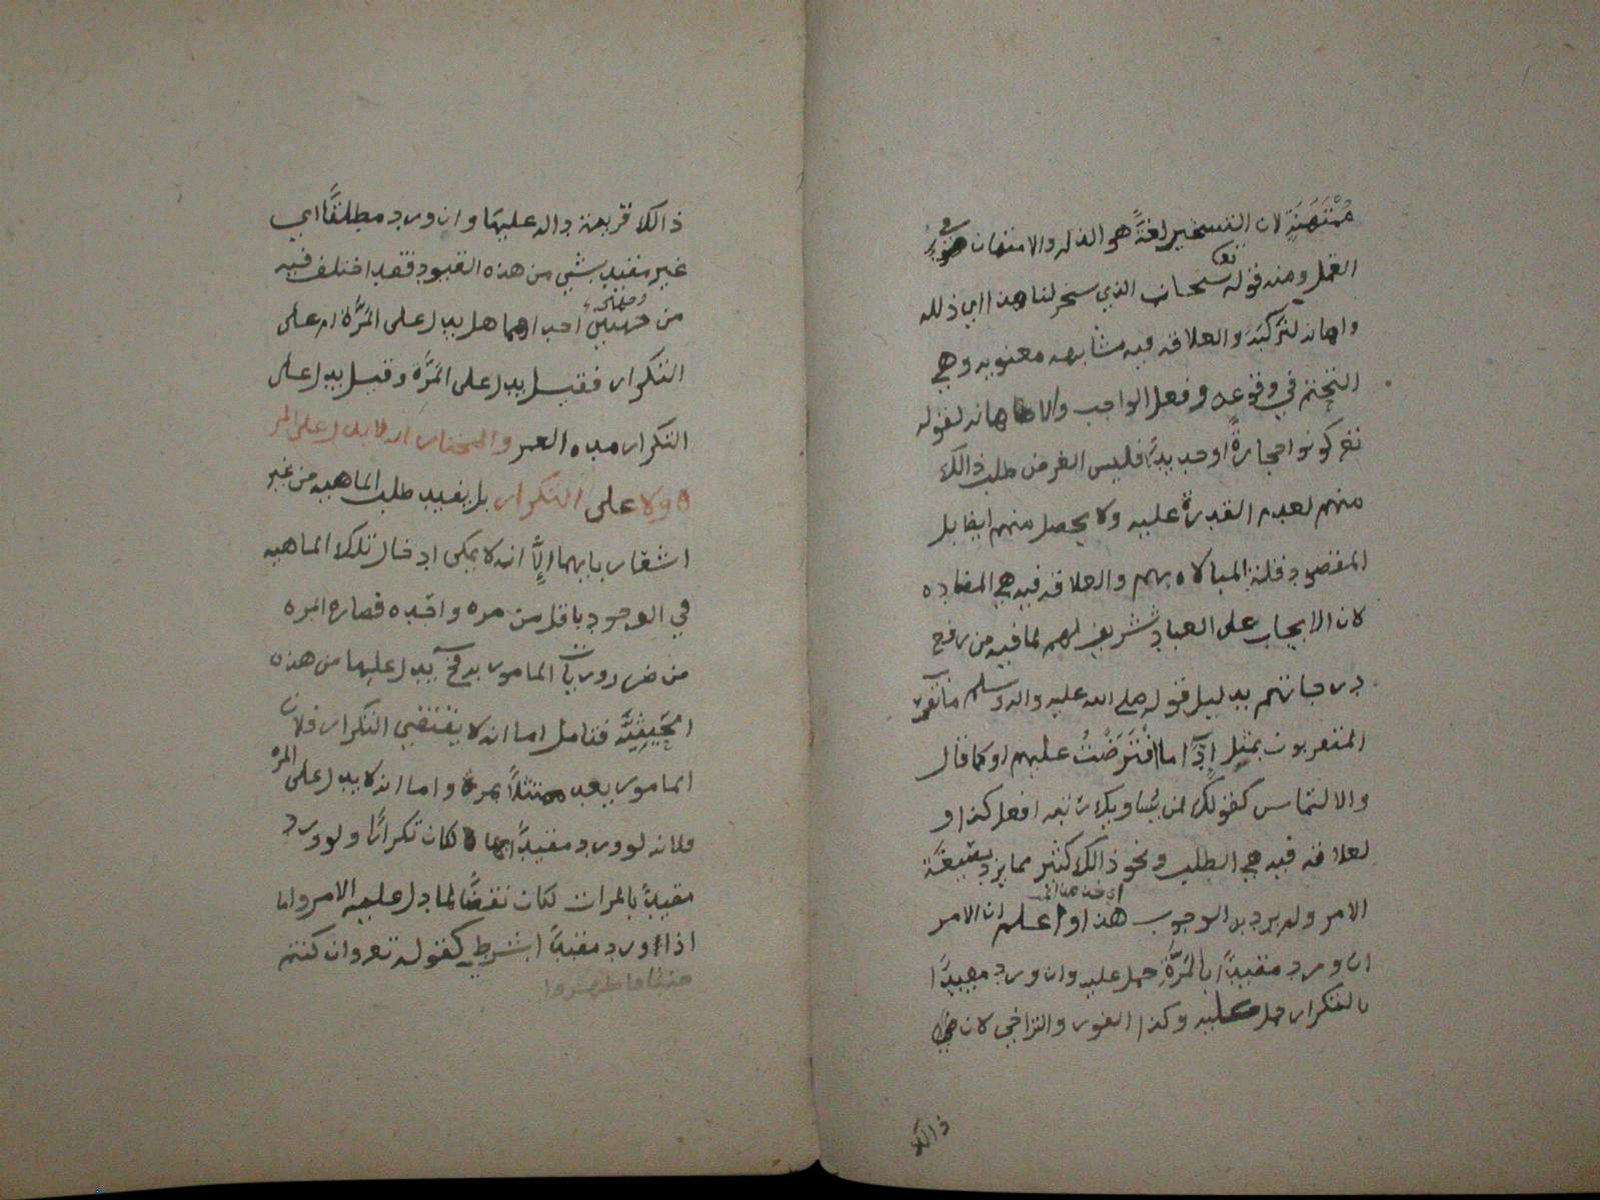 مُمْتَهَنَةٍ لان التسخير لغةً هو الذله والامتهان في
العمل ومنه قوله تعا سبحان الذي سخر لنا هذا اي ذلله
واهانه لنركبَهُ والعلاقه فيه مشابهه معنويه وهي
التحتم في وقوعه وفعل الواجب والاهانه لقوله
تعر كونوا حجارةً او حديدًا فليس الغرض طلب ذالك
منهم لعدم القدرة عليه ولا يحصل منهم ايضا بل
المقصود قلة المبالاه بهم والعلاقه فيه هي المضاده
لان الايجاب على العباد تشريف لهم لما فيه من رفع
درجاتهم بدليل قوله صلى الله عليه واله وسلم ما تقرب
المتقربون بمثل اداء ما افْتَرَضْتُ عليهم او كما قال
والالتماس كقولك لمن يساويك رتبه افعل كذا و
لعلاقه فيه هي الطلب ونحو ذالك كثير مما يرد بصيغة
الامر ولم يرد به الوجوب هذا واعلم ان الامر
اي خذ هذا
ان ورد مقيدًا بالمَرَّةِ حمل عليه وان ورد مقيدًا
بالتكرار حمل عليه وكذا الفور والتراخي لان في
ذالك
ذالك قرينة داله عليها وان ورد مطلقًا اي
غير مقيد بشي من هذه القيود فقد اختلف فيه
من جهتين احداهما هل يدل على المَرَّة ام على
التكرار فقيل يدل على المَرَّة وقيل يدل على
التكرار مده العمر والمختار انه لا يدل على المر
ه ولا على التكرار بل يفيد طلب الماهيه من غير
اشعار بايهما اِلَّا انه لا يمكن ادخال تلك الماهيه
في الوجود باقل من مره واحده فصارة المره
من ضروريات المامور به فح يدل عليها من هذه
الحَيثِيَّه فتامل اما انه لا يقتضي التكرار فلان
المامور يعد ممتثلاً بمرة واما انه لا يدل على المره
فلانه لو ورد مقيدًا بها لكان تكرارًا ولو ورد
مقيدًا بالمرات لكان نقضًا لما دل عليه الامر واما
اذا ورد مقيدًا بشرط كقوله تعر وان كنتم
جنبًا فاطهروا